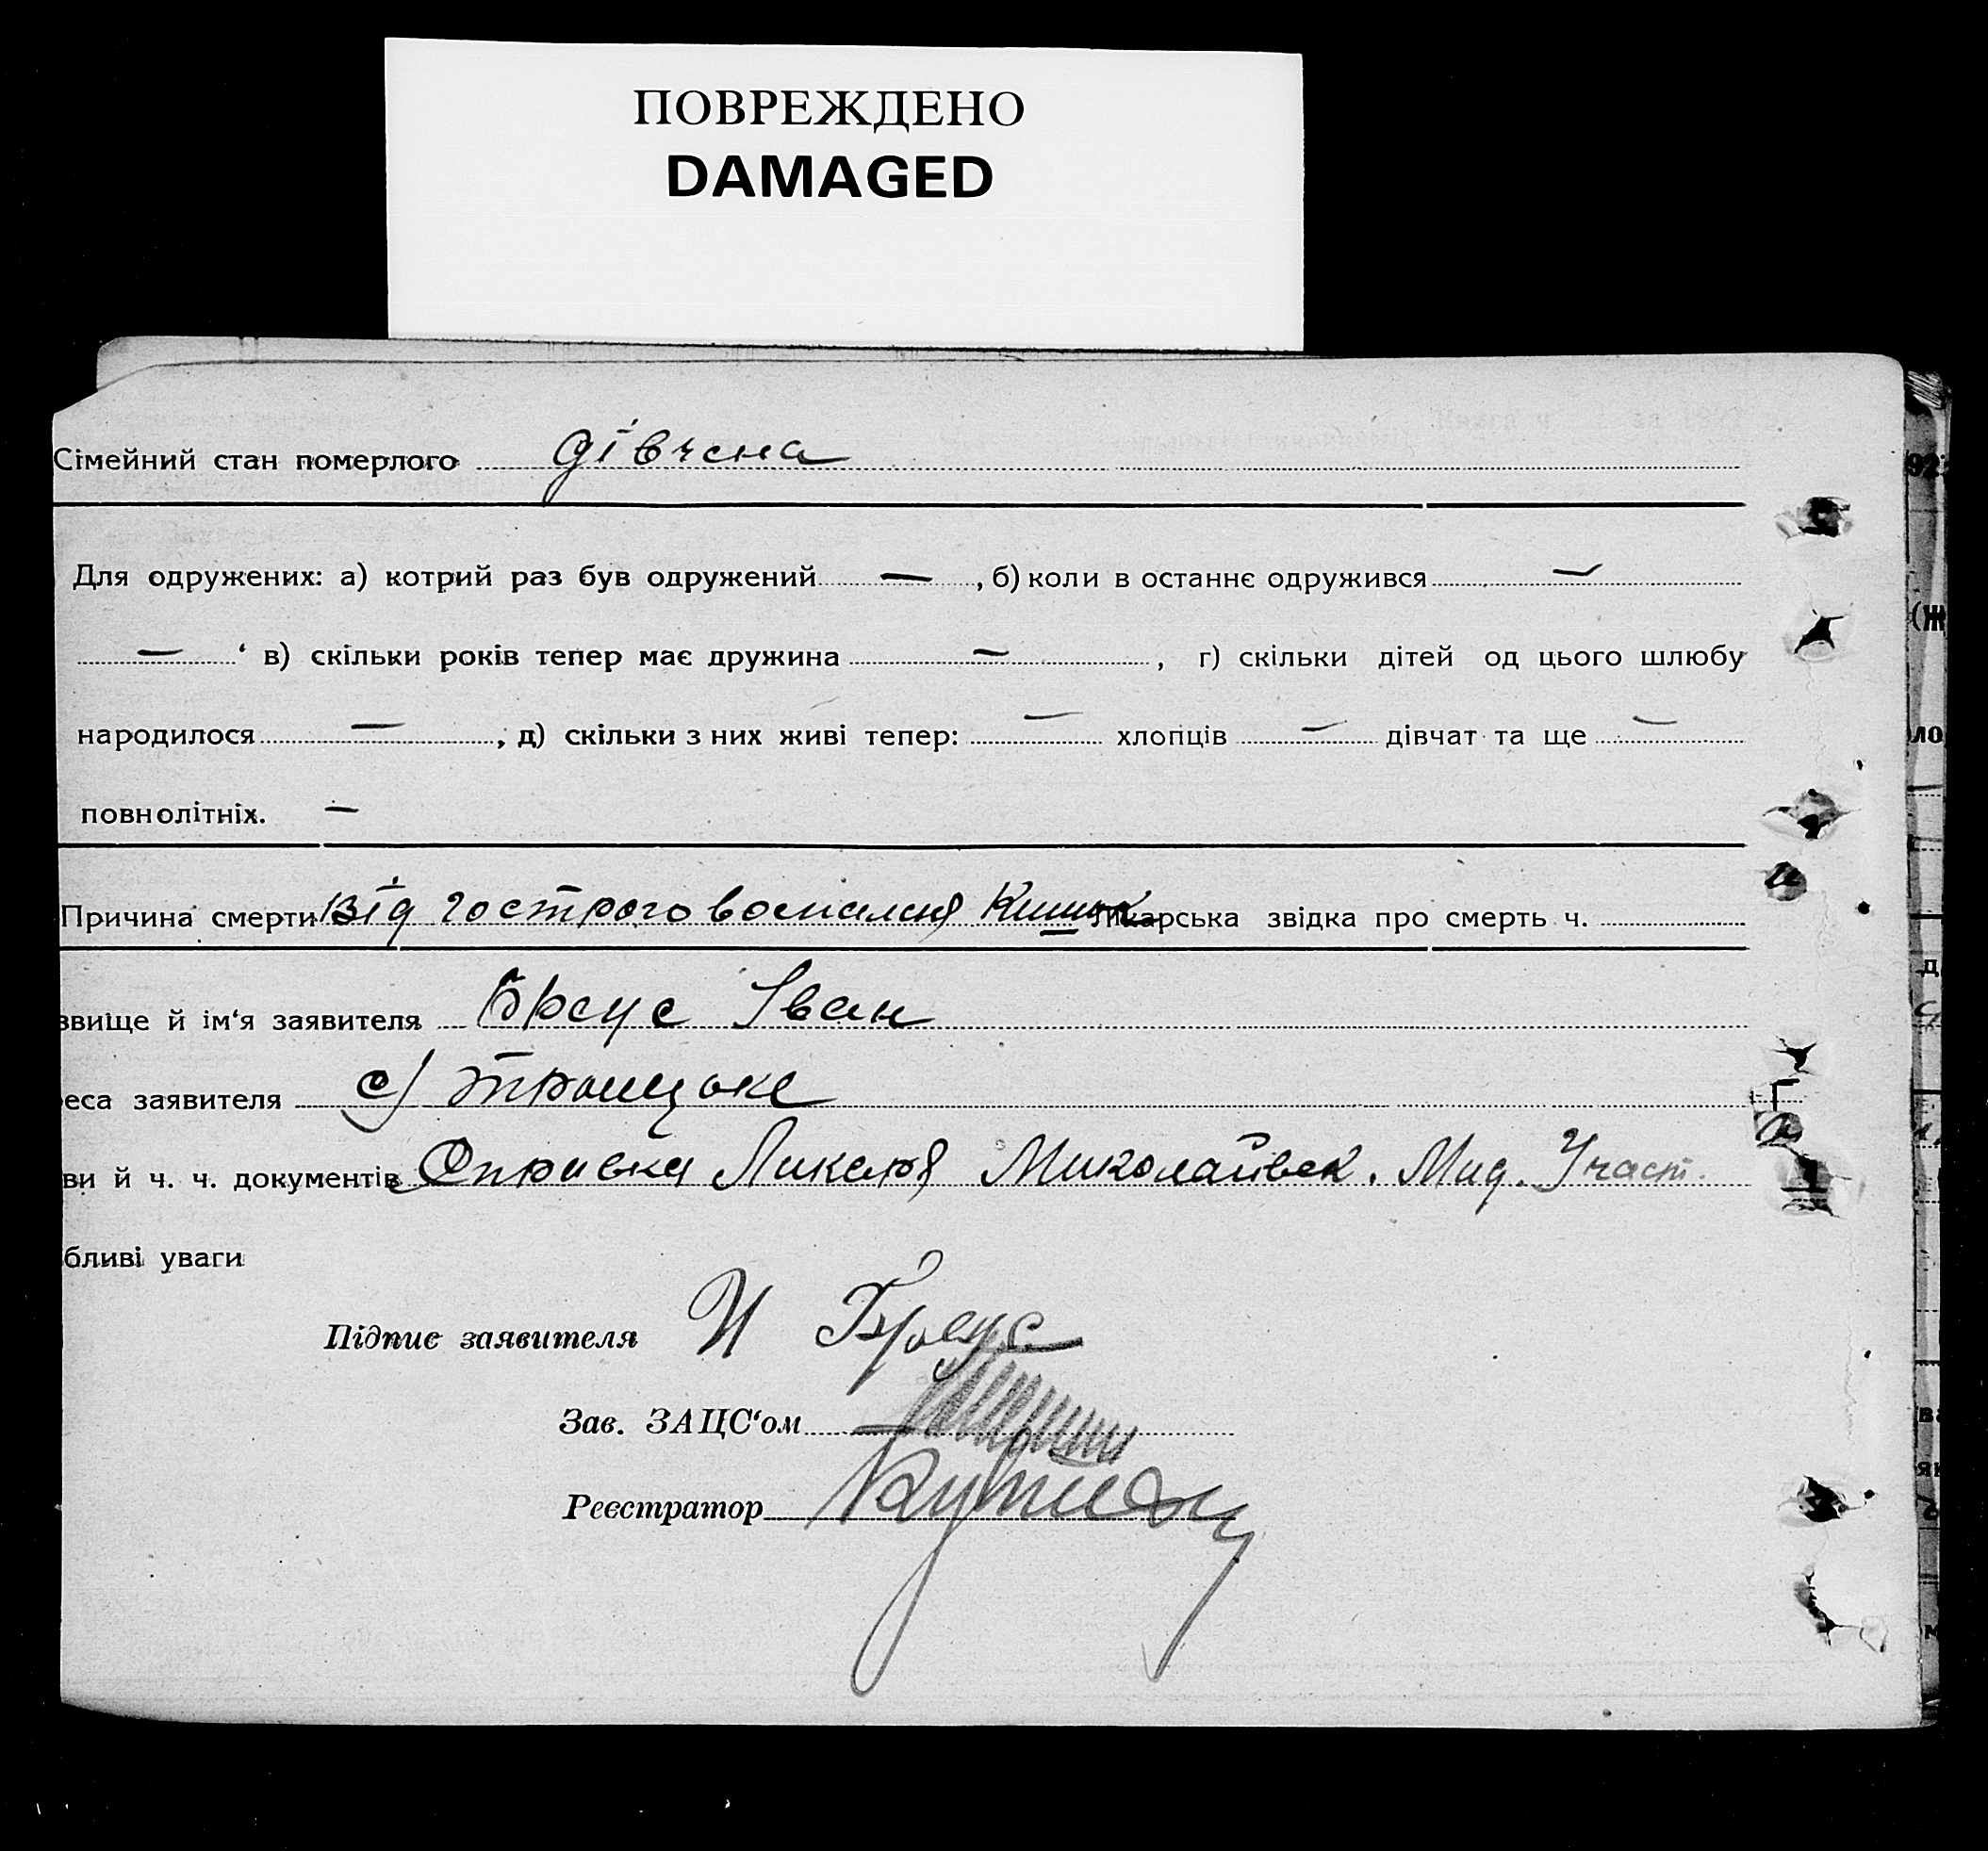 ПОВРЕЖДЕНО
DAMAGED
Сімейний стан померлого дівчена
Для одружених: а) котрий раз був одружений — , б) коли в останнє одружився —
— ‘ в) скільки років тепер має дружина — , г) скільки дітей од цього шлюбу
народилося — , д) скільки з них живі тепер: — хлопців — дівчат та ще —
повнолітніх. —
Причина смерти від гострого воспаленя Кишок Лікарська звідка про смерть ч.
звище й ім‘я заявителя Брсус Іван
еса заявителя с) Троицьке
ви й ч. ч. документів Справка Ликаря Миколаївск. Мид. Участ.
бливі уваги
Підпис заявителя И Брсус
Зав. ЗАЦС‘ом
Реєстратор